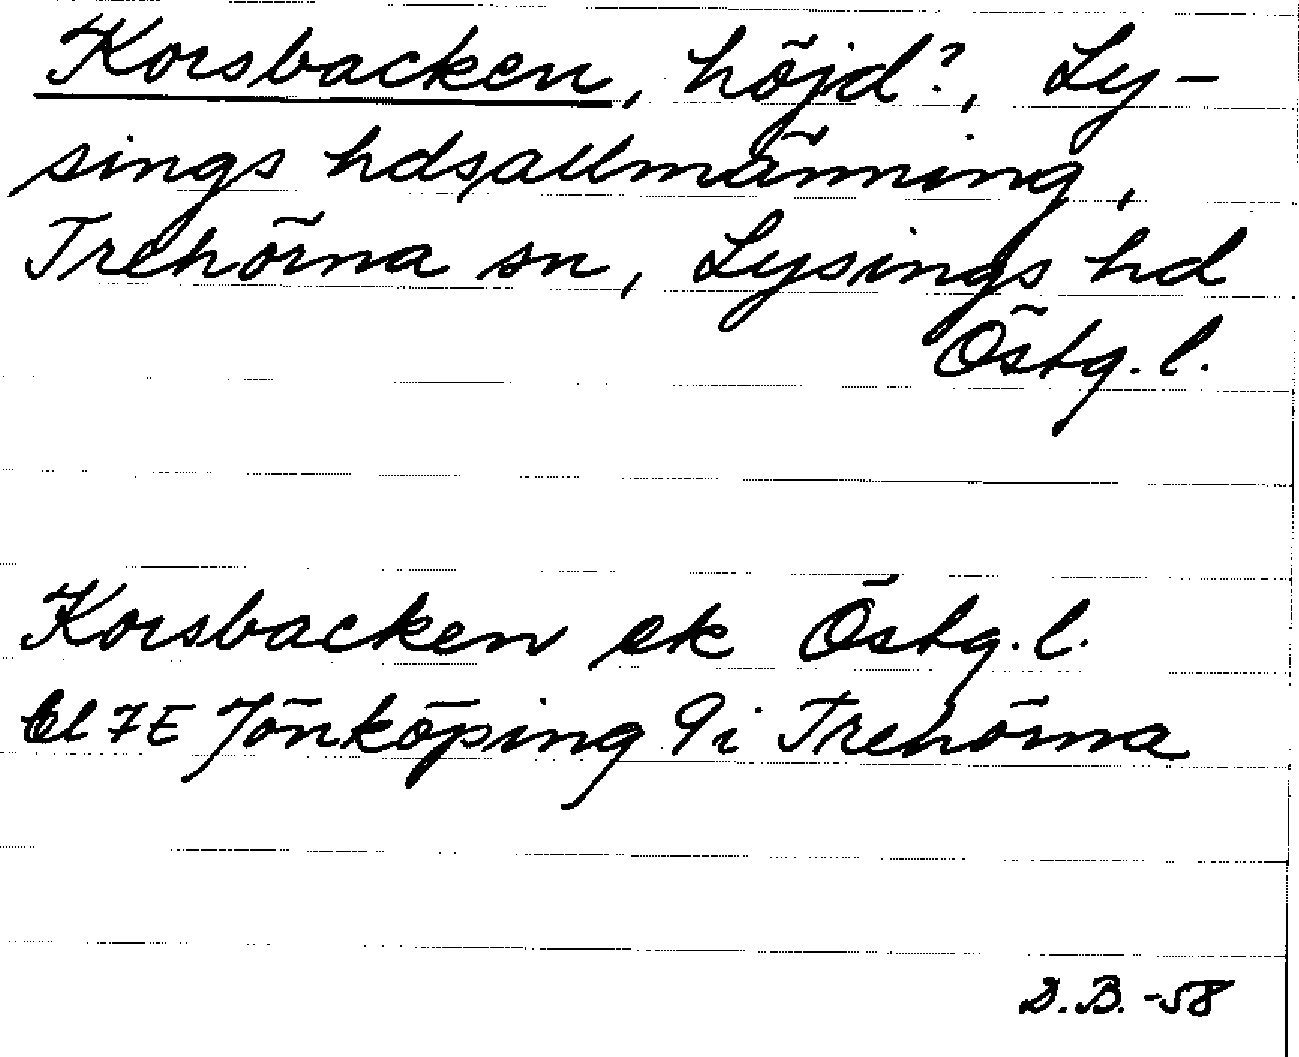 Korsbacken, höjd?, Ly-
sings hdsallmänning,
Trehörna sn, Lysings hd
Östg. l.
Korsbacken ek Östg. l.
bl 7E Jönköping 9i Trehörna
D.B. -58